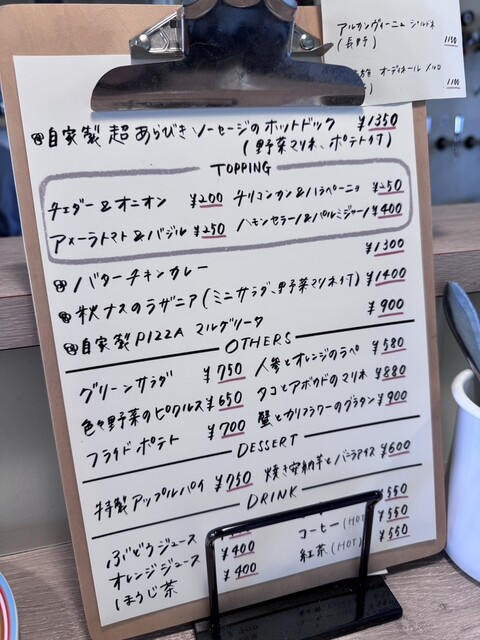 アルカンヴィーニュ シャルドネ
(長野)
1150
オーディネール メルロ
1100
自家製 超あらびきソーセージのホットドック ¥1350
(野菜マリネ、ポテト付)
TOPPING
チェダー&オニオン ¥200 チリコンカン&ハラペーニョ ¥250
アメーラトマト&バジル ¥250 ハモンセラーノ&パルミジャーノ ¥400
バターチキンカレー ¥1300
秋ナスのラザニア(ミニサラダ、野菜マリネ付) ¥1400
自家製PIZZA マルゲリータ ¥900
OTHERS
グリーンサラダ ¥750 人参とオレンジのラペ ¥580
色々野菜のピクルス ¥650 タコとアボカドのマリネ ¥880
フライドポテト ¥700 蟹とカリフラワーのグラタン ¥900
DESSERT
特製アップルパイ ¥750 焼き安納芋とバニラアイス ¥600
DRINK
550
ぶどうジュース コーヒー(HOT) ¥550
オレンジジュース ¥400 紅茶(HOT) ¥550
ほうじ茶 ¥400